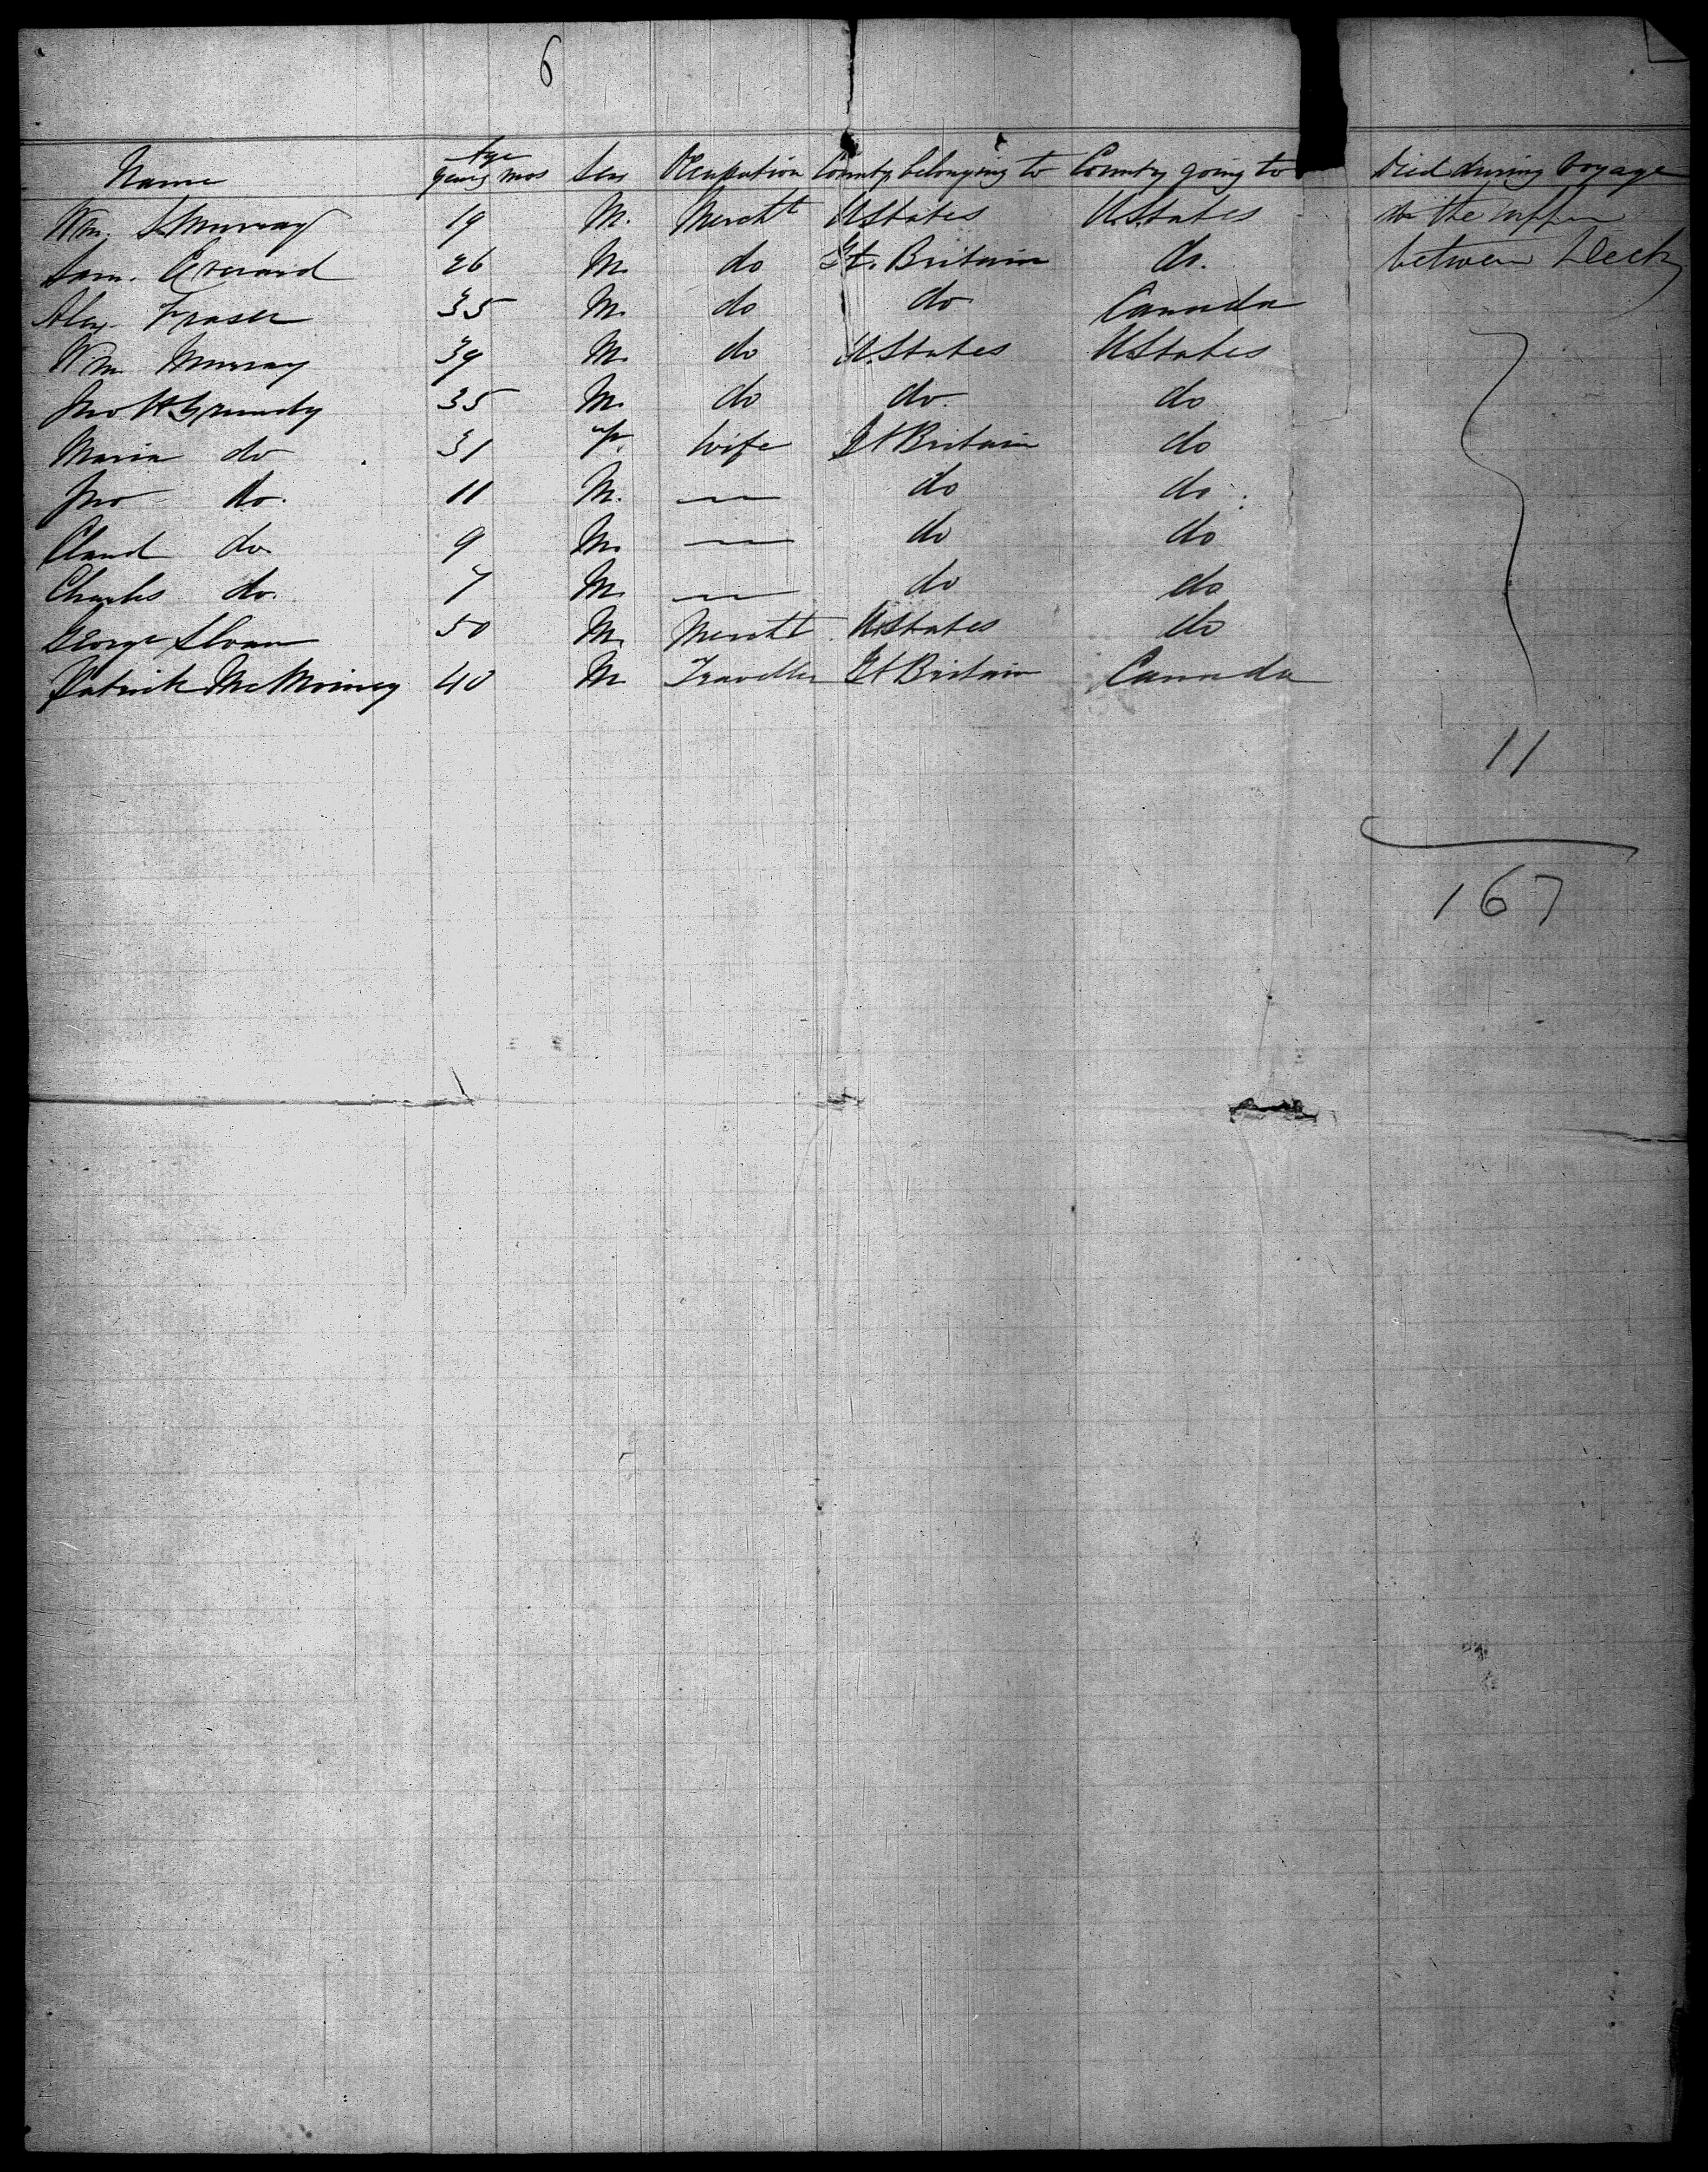 6
Age
Name years mos Sex Occupation Country belonging to Country going to Died during Voyage
Wm. S Murray 19 M. Mercht UStates U.States In the upper
Sam. Everard 26 M. do Gt. Britain do. between Deck
Alex. Fraser 35 M. do do Canada
Wm Murray 39 M. do U.States UStates
Jno H Grundy 35 M. do do. do
Maria do 31 F. Wife Gt Britain do
Jno do. 11 M. — do do.
Claud do 9 M. — do do
Charles do. 7 M. — do do
George Sloan 50 M. Mercht UStates do
Patrick 40 M Traveller Gt Britain Canada
11
167